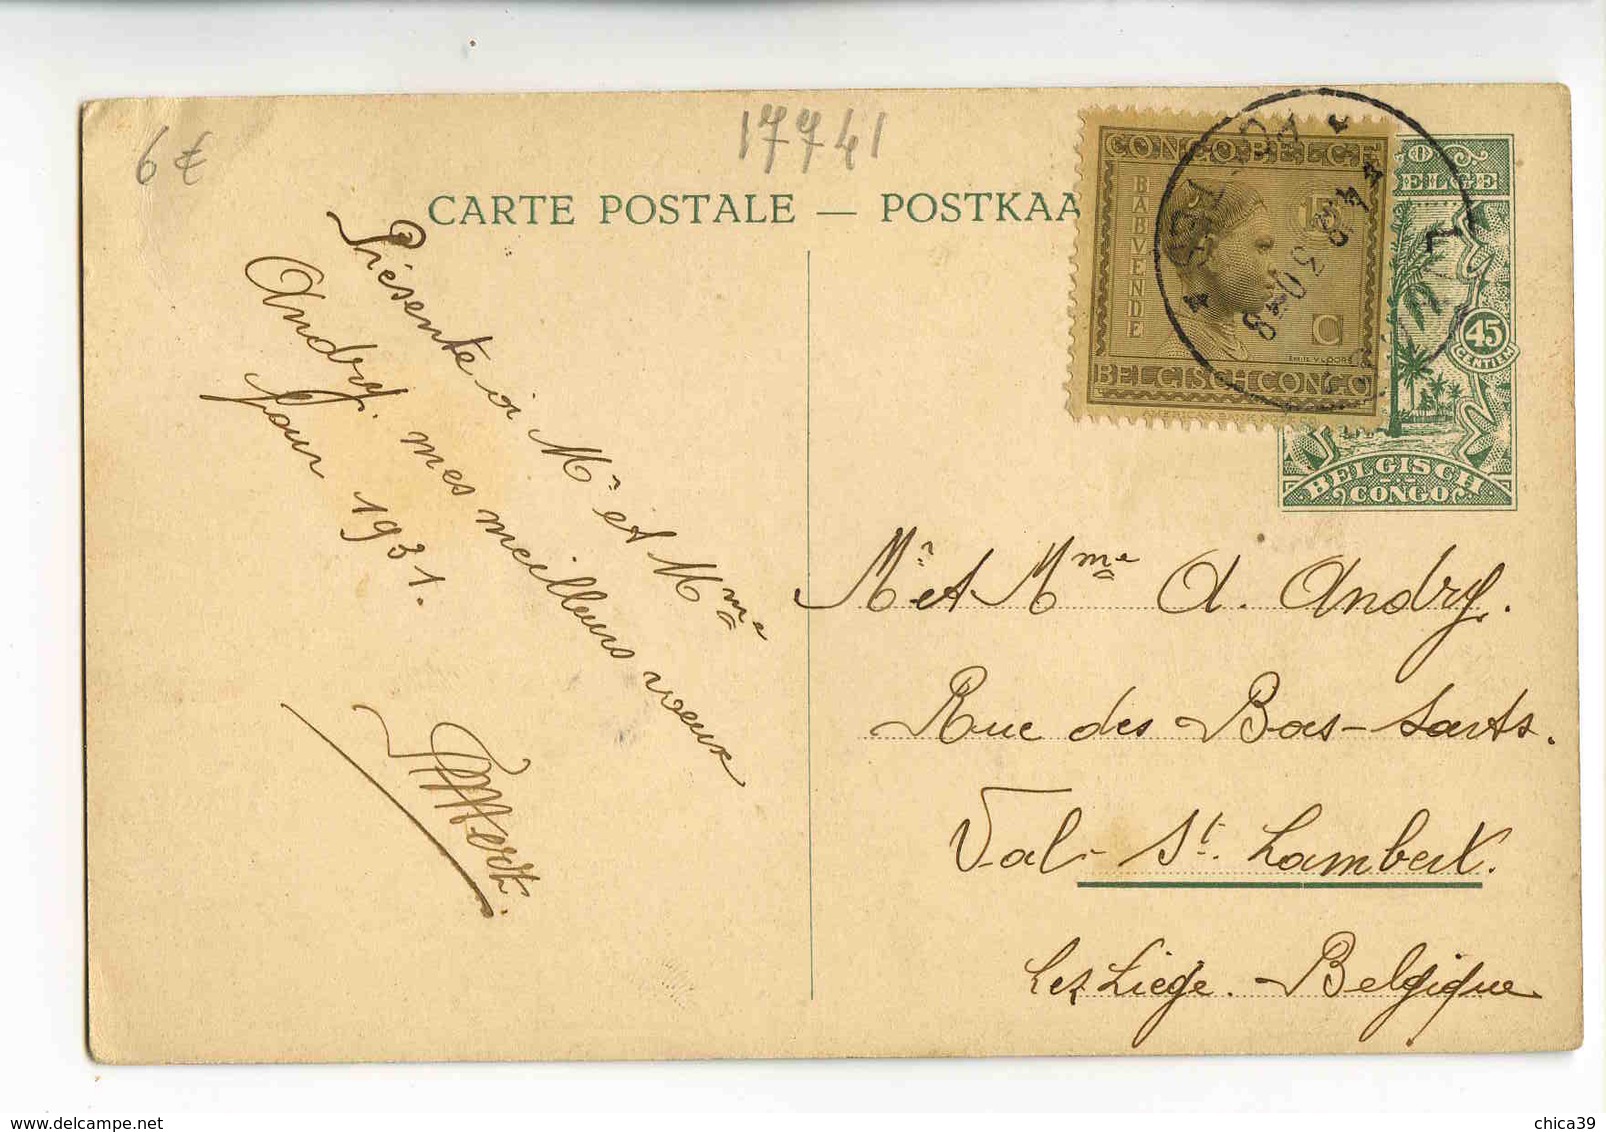 6 €
17741
CARTE POSTALE — POSTKAA
CONGO BELGE
BARVENDE
15
C
EMILE VLOORS
BELGISCH CONGO
ELGE
45
CENTIEM
BELGISCH
CONGO
Présente à Mr et Mme
Andry. mes meilleurs vœux
pour 1931.
Mr et Mme A. Andry.
Rue des Bas-Sarts.
Val-St. Lambert.
Lez Liège. - Belgique
chica39